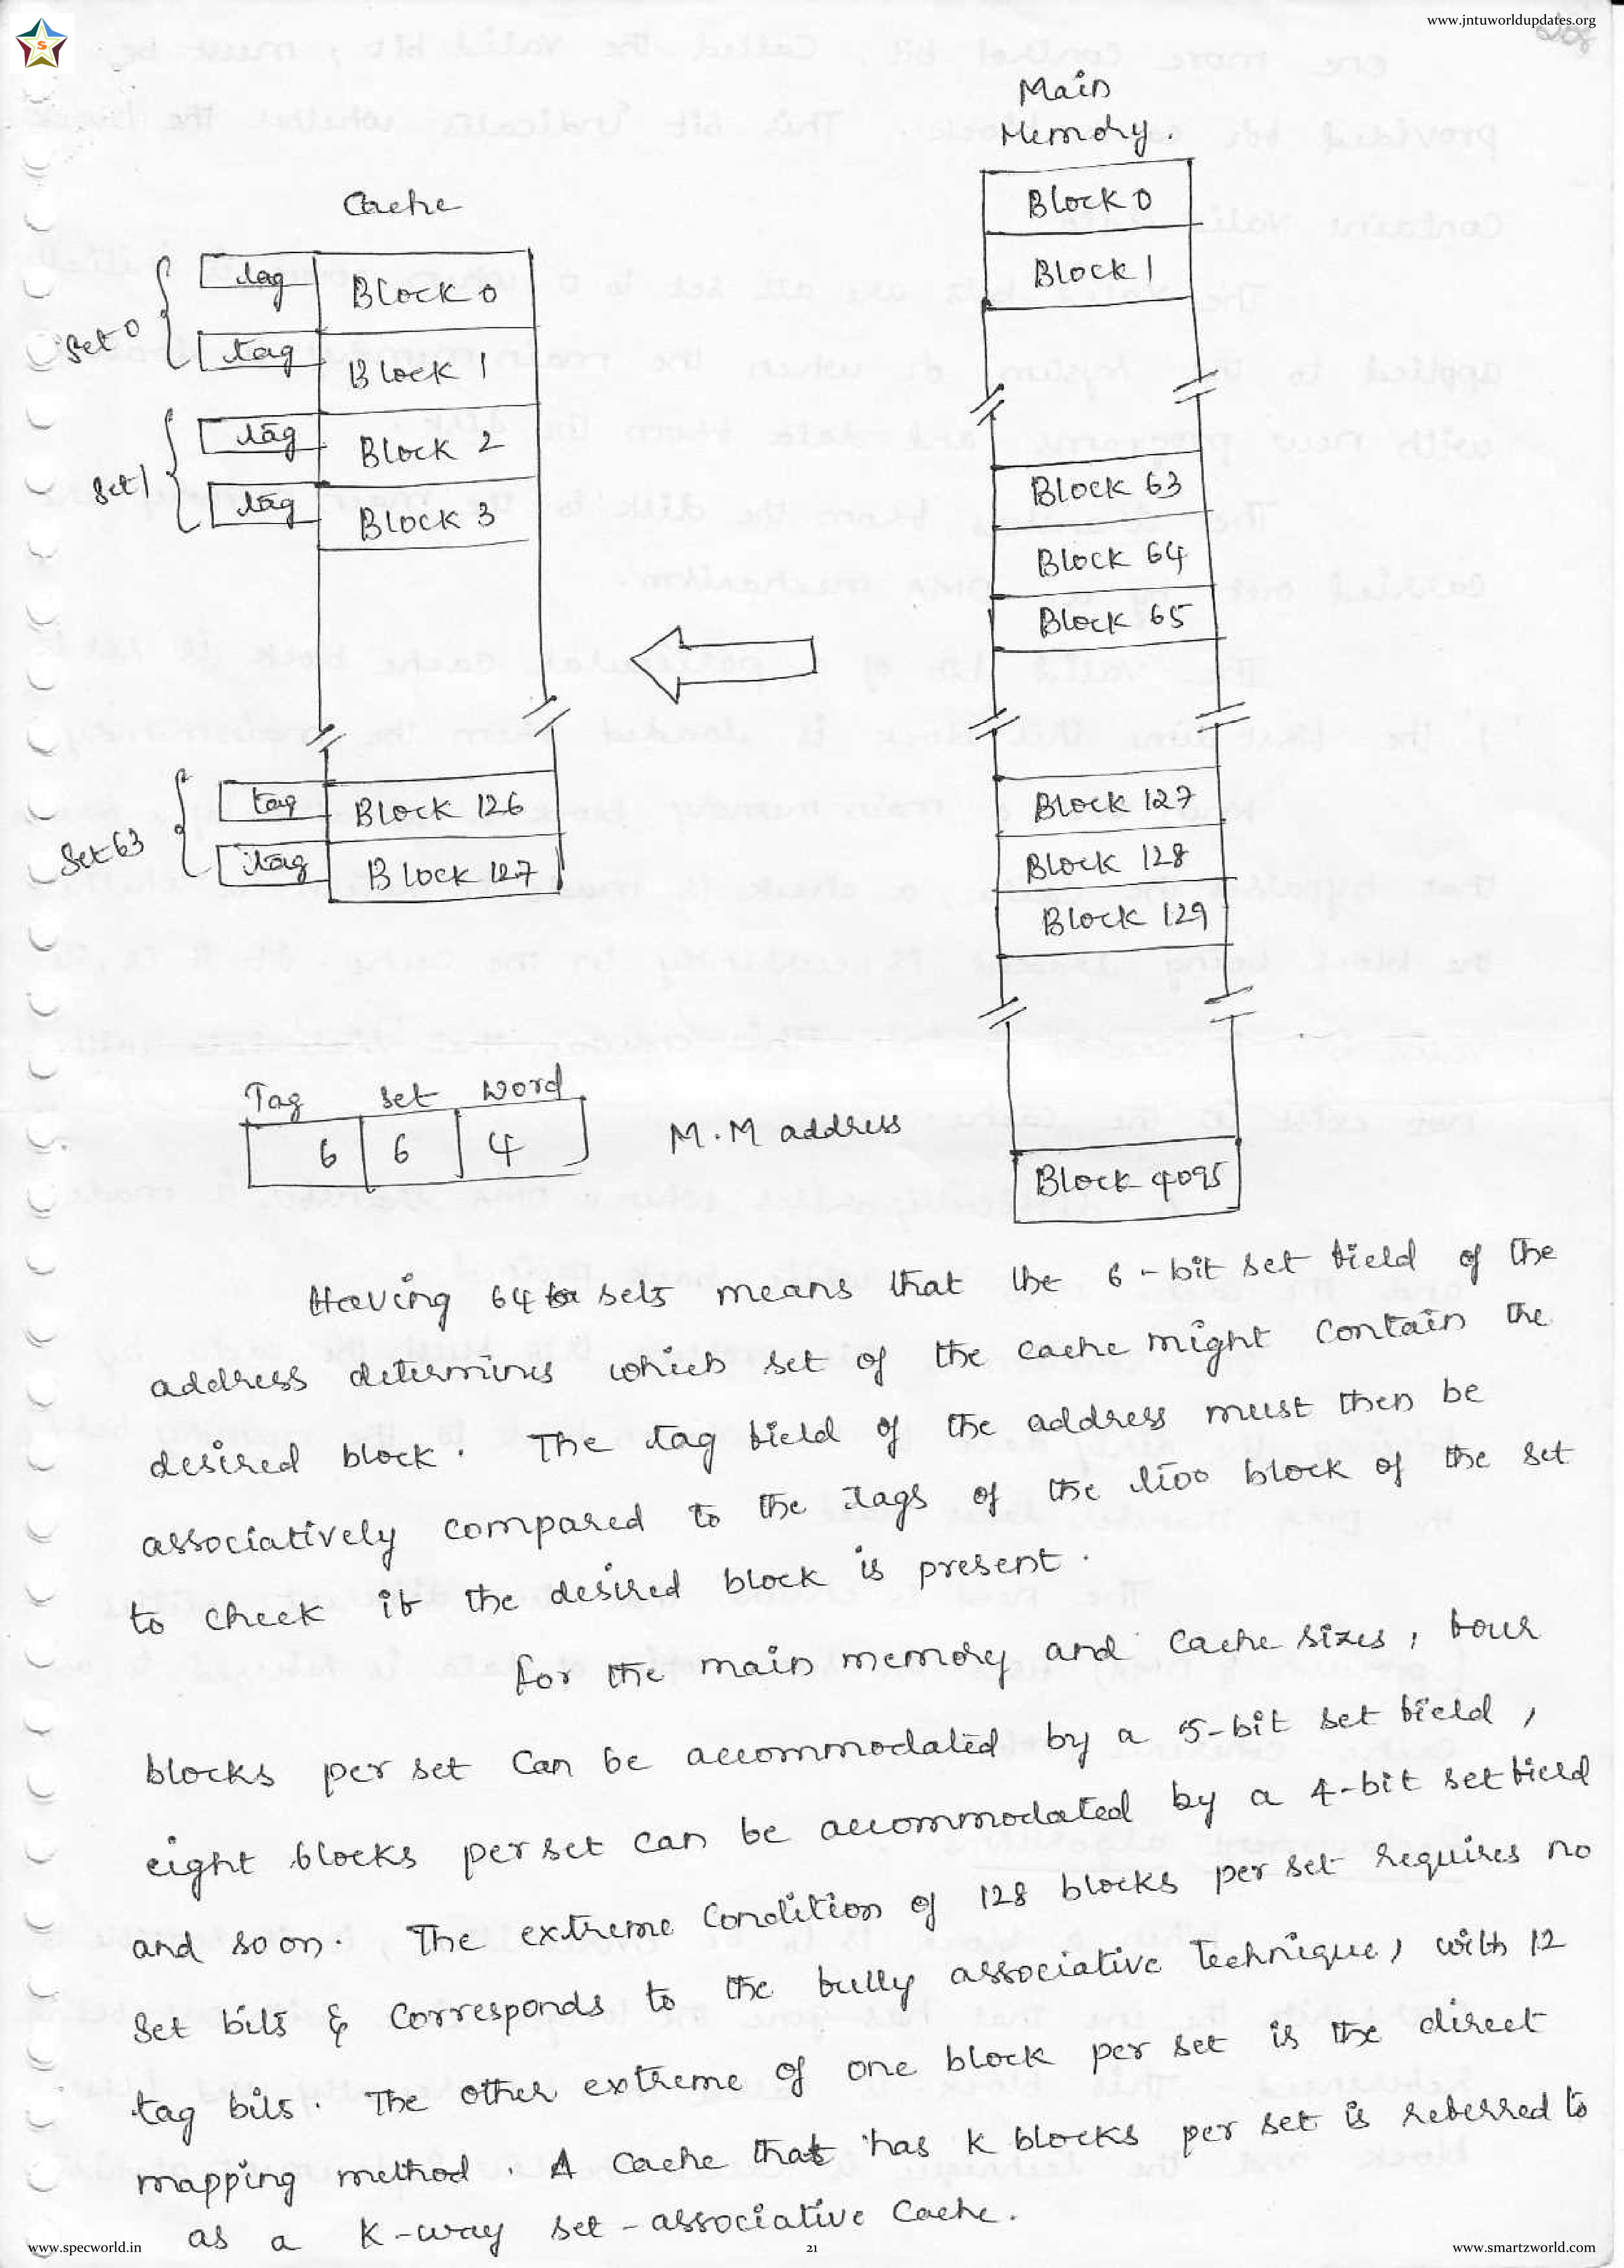 www.jntuworldupdates.org
S
Main
Memory.
Cache
Block 0
Block 1
tag
Block 0
Set 0
tag
Block 1
tag
Block 2
Set 1
tag
Block 3
Block 63
Block 64
Block 65
tag
Block 126
Set 63
tag
Block 127
Block 127
Block 128
Block 129
Tag Set Word
6 6 4
M.M address
Block 4095
Having 64 sets means that the 6-bit set field of the
address determines which set of the cache might contain the
desired block. The tag field of the address must then be
associatively compared to the tags of the two block of the set
to check if the desired block is present.
For the main memory and cache sizes, four
blocks per set can be accommodated by a 5-bit set field,
eight blocks per set can be accommodated by a 4-bit set field
and so on. The extreme condition of 128 blocks per set requires no
set bits & corresponds to the fully associative technique, with 12
tag bits. The other extreme of one block per set is the direct
mapping method. A cache that has K blocks per set is referred to
as a K-way set-associative cache.
www.specworld.in
21
www.smartzworld.com